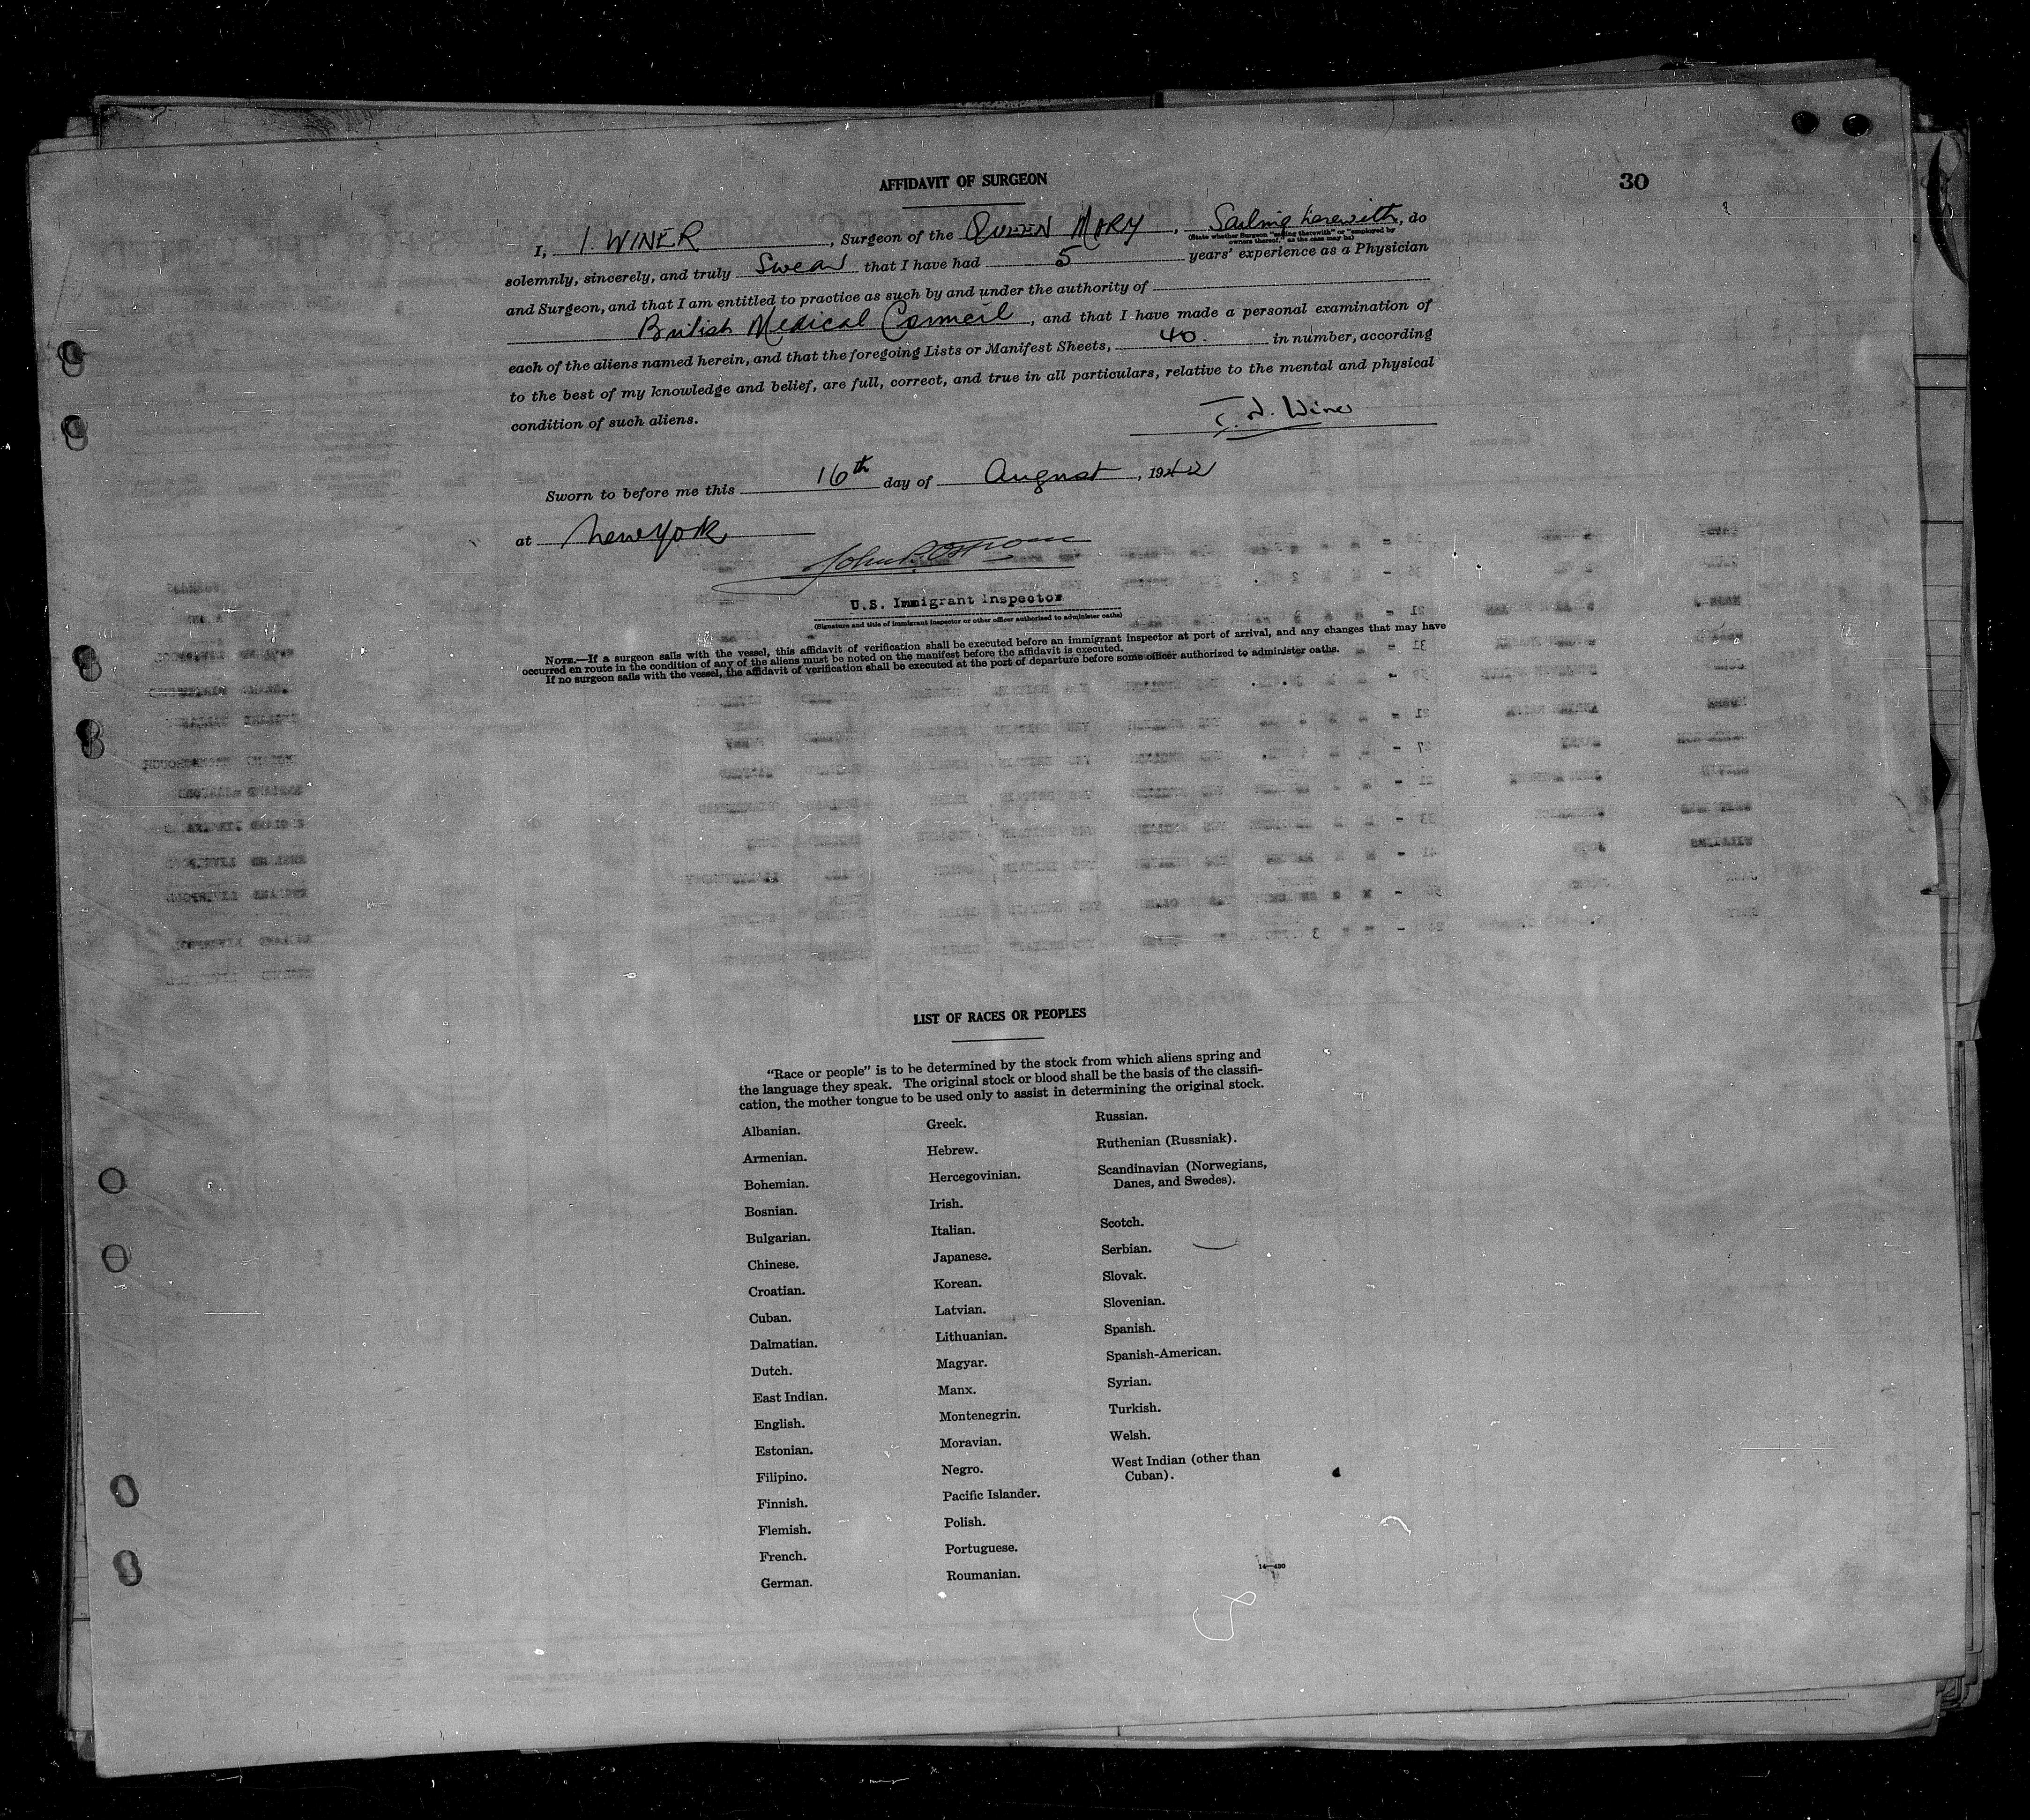 AFFIDAVIT OF SURGEON
30
I, I. WINER, Surgeon of the QUEEN MARY, Sailing herewith, do
(State whether Surgeon "sailing therewith" or "employed by
owners thereof," as the case may be)
solemnly, sincerely, and truly Swear that I have had 5 years' experience as a Physician
and Surgeon, and that I am entitled to practice as such by and under the authority of
British Medical Council, and that I have made a personal examination of
each of the aliens named herein, and that the foregoing Lists or Manifest Sheets, 40. in number, according
to the best of my knowledge and belief, are full, correct, and true in all particulars, relative to the mental and physical
condition of such aliens.
Winer
Sworn to before me this 16th day of August, 1942
at New York
John P. Ostrom
U.S. Immigrant Inspector
(Signature and title of immigrant inspector or other officer authorized to administer oaths)
NOTE.—If a surgeon sails with the vessel, this affidavit of verification shall be executed before an immigrant inspector at port of arrival, and any changes that may have
occurred en route in the condition of any of the aliens must be noted on the manifest before the affidavit is executed.
If no surgeon sails with the vessel, the affidavit of verification shall be executed at the port of departure before some officer authorized to administer oaths.
LIST OF RACES OR PEOPLES
"Race or people" is to be determined by the stock from which aliens spring and
the language they speak. The original stock or blood shall be the basis of the classifi-
cation, the mother tongue to be used only to assist in determining the original stock.
Albanian.
Armenian.
Bohemian.
Bosnian.
Bulgarian.
Chinese.
Croatian.
Cuban.
Dalmatian.
Dutch.
East Indian.
English.
Estonian.
Filipino.
Finnish.
Flemish.
French.
German.
Greek.
Hebrew.
Hercegovinian.
Irish.
Italian.
Japanese.
Korean.
Latvian.
Lithuanian.
Magyar.
Manx.
Montenegrin.
Moravian.
Negro.
Pacific Islander.
Polish.
Portuguese.
Roumanian.
Russian.
Ruthenian (Russniak).
Scandinavian (Norwegians,
Danes, and Swedes).
Scotch.
Serbian.
Slovak.
Slovenian.
Spanish.
Spanish-American.
Syrian.
Turkish.
Welsh.
West Indian (other than
Cuban).
14—430